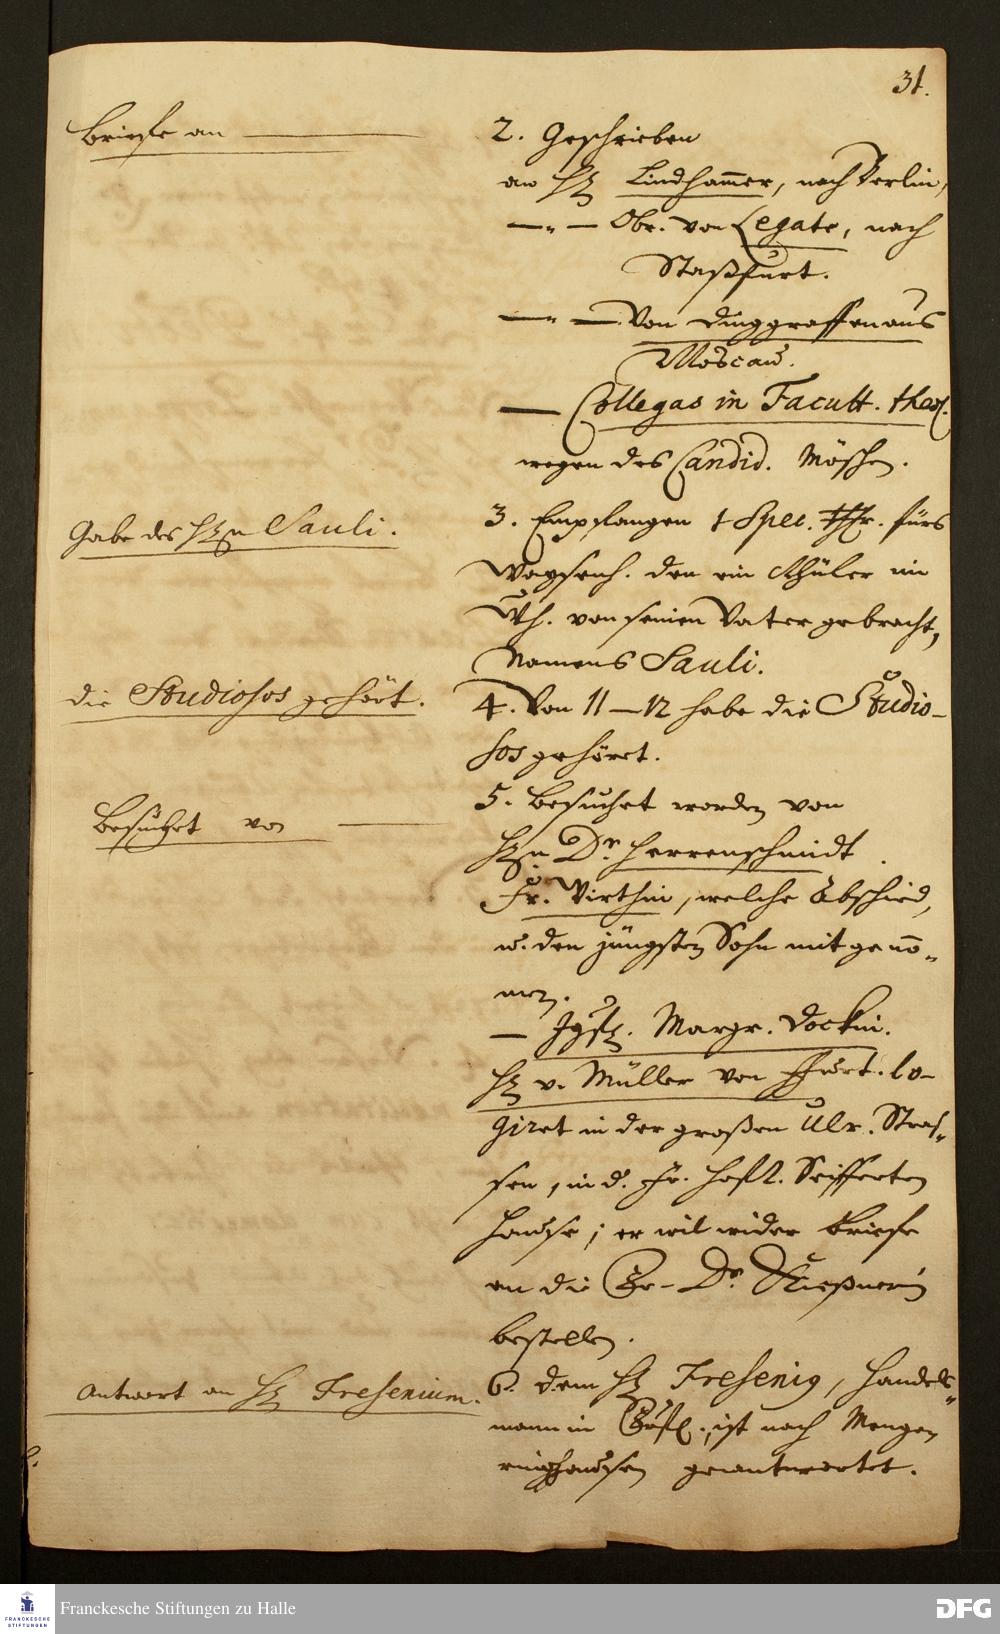 31.
Briefe an
2. Geschrieben
an H. Lindhammer, nach Berlin,
—"— Obr. von Legate, nach
Staßfurt.
—"— Von dinggraffen aus
Moscau.
— Collegas in Facult. theol.
wegen des Candid. Möschen.
Gabe des H.n Sauli.
3. Empfangen 1 Spec. Thlr. fürs
Waysenh. den ein Schüler im
Wh. von seinen Vater gebracht,
Namens Sauli.
die Studiosos gehört.
4. Von 11–12 habe die Studio-
sos gehöret.
Besucht von
5. Besuchet worden von
H.n Dr. Herrenschmidt.
Fr. Wirthin, welche Abschied,
u. den jüngsten Sohn mit genō-
men.
— Jgfr. Margr. Dockin.
H. v. Müller von lo-
giret in der großen Ulr. Stras-
sen, in d. Fr. Seifferten
Hause; er wil wider briefe
an die Dr.
bestellen.
Antwort an H. Fresenium.
6. dem H. Fresenig, Handels-
mann in ist nach Mengen
ringhausen geantwortet.
Franckesche Stiftungen zu Halle
FRANCKESCHE
STIFTUNGEN
DFG